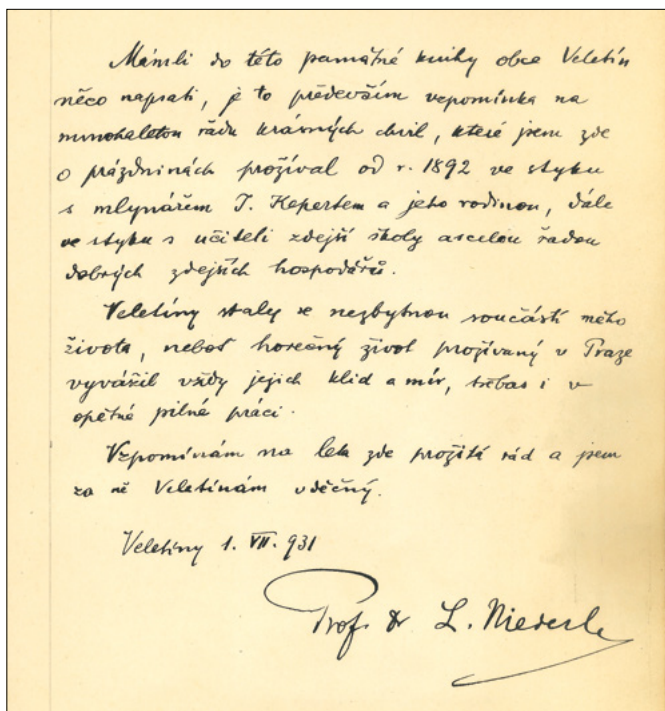 Mámli do této památné knihy obce Veletín
něco napsati, je to především vzpomínka na
mnohaletou řadu krásných chvil, které jsem zde
o prázdninách prožíval od r. 1892 ve styku
s mlynářem T. Kepertem a jeho rodinou, dále
ve styku s učiteli zdejší školy a celou řadou
dobrých zdejších hospodářů.
Veletiny staly se nezbytnou součástí mého
života, neboť horečný život prožívaný v Praze
vyvážil vždy jejich klid a mír, třebas i v
opětné pilné práci.
Vzpomínám na leta zde prožitá rád a jsem
za ně Veletinám vděčný.
Veletiny 1. VII. 931
Prof. Dr L. Niederle